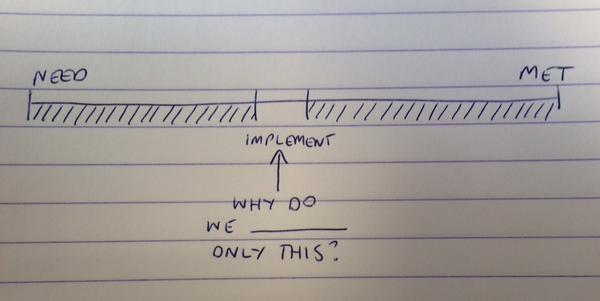 NEED
MET
IMPLEMENT
WHY DO
WE ________
ONLY THIS?